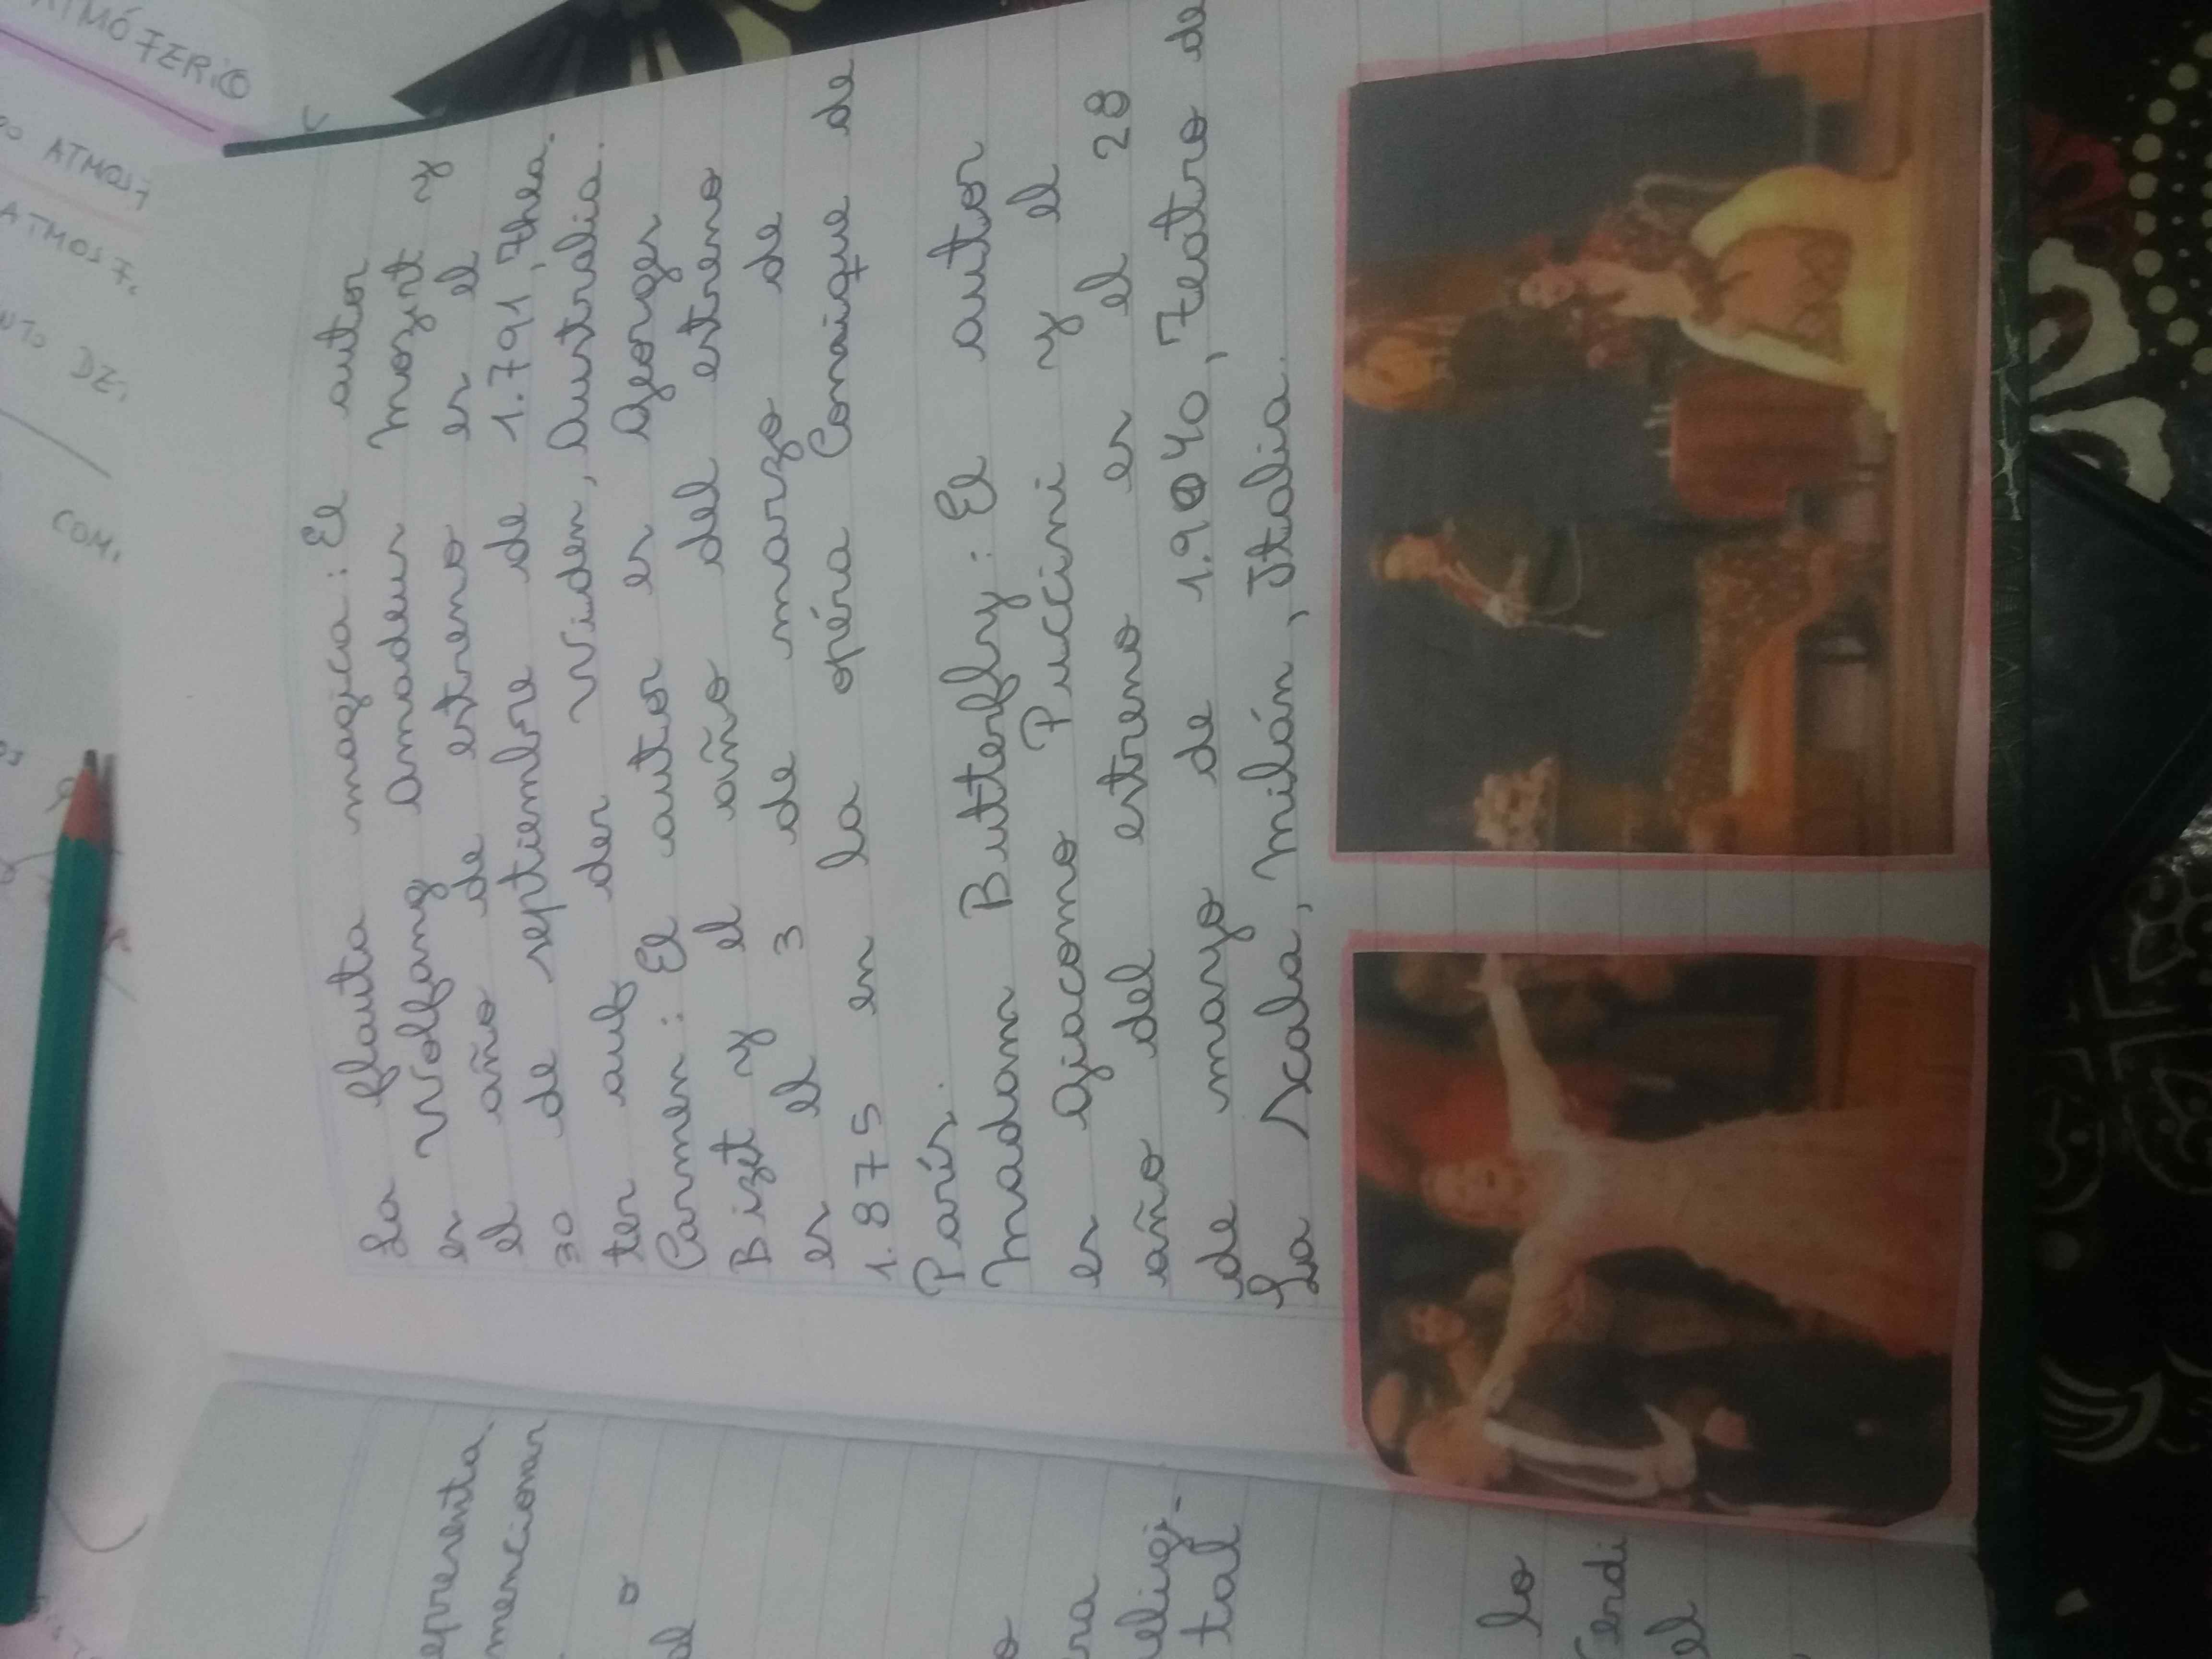 La flauta magica: El autor
es Wolfang Amadeus Mozart y
el año de estreno es el
30 de septiembre de 1.791, Thea.
ter auf der Widen, Australia.
Carmen: El autor es Georges
Bizet y el año del estreno
es el 3 de marzo de
1.875 en la opéra Comique de
París.
Madam Butterfly: El autor
es Giacomo Puccini y el
año del estreno es el 28
de mayo de 1.9040, Teatro de
La Scala, Milán, Italia.
ATMÓFERiCO
ATMOS
COM.
epresenta.
mencionar
o
ra
eligi-
tal
lo
el